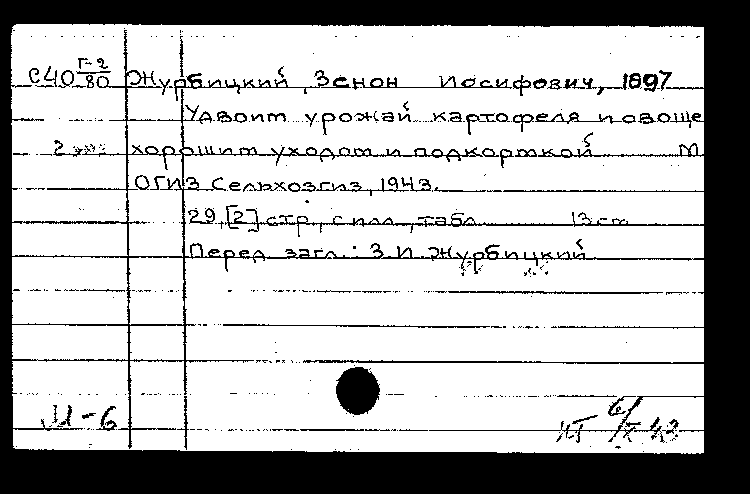 С40 Г-2/80 Журбицкий, Зенон Иосифович, 1897
Удвоит урожай картофеля и овоще
2 экз хорошит уходом и подкормкой М
ОГИЗ Сельхозгиз, 1943.
29, [2] стр., с илл., табл. 13 cm
Перед загл.: З. И. Журбицкий
М-6
6/X 43